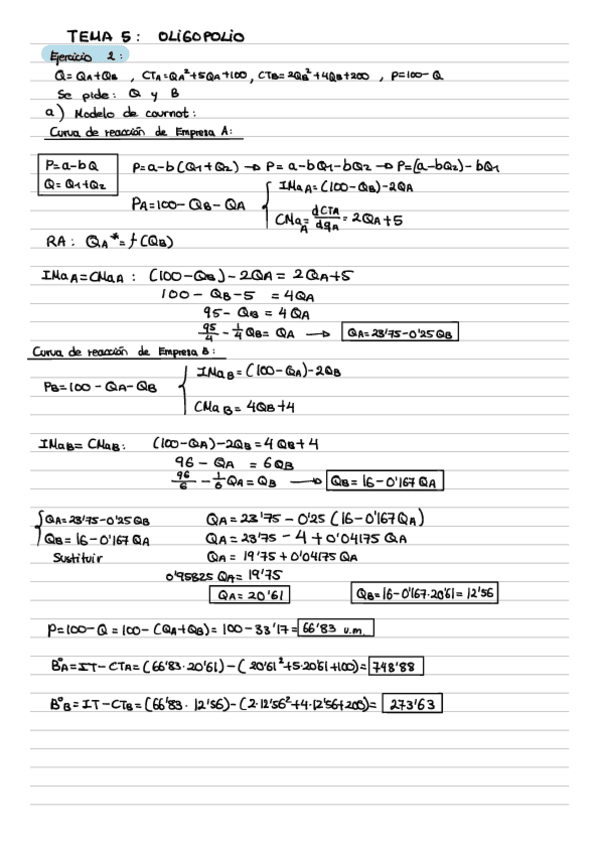 TEMA 5: OLIGOPOLIO
Ejercicio 2:
Q=QA+QB , CTA=QA²+5QA+100, CTB=2QB²+4QB+200 , P=100-Q
Se pide: Q y B
a) Modelo de cournot:
Curva de reacción de Empresa A:
P=a-bQ
Q=Q1+Q2
P=a-b(Q1+Q2) → P= a-bQ1-bQ2 → P=(a-bQ2)-bQ1
PA=100-QB-QA
IMaA=(100-QB)-2QA
CMaA=dCTA/dqA=2QA+5
RA: QA*=f(QB)
IMaA=CMaA: (100-QB)-2QA=2QA+5
100-QB-5 =4QA
95-QB=4QA
95/4-1/4QB=QA → QA=23'75-0'25QB
Curva de reacción de Empresa B:
PB=100-QA-QB
IMaB=(100-QA)-2QB
CMaB=4QB+4
IMaB=CMaB: (100-QA)-2QB=4QB+4
96-QA=6QB
96/6-1/6QA=QB → QB=16-0'167QA
QA=23'75-0'25QB
QB=16-0'167QA
Sustituir
QA=23'75-0'25(16-0'167QA)
QA=23'75-4+0'04175QA
QA=19'75+0'04175QA
0'95825QA=19'75
QA=20'61
QB=16-0'167·20'61=12'56
P=100-Q=100-(QA+QB)=100-33'17=66'83 u.m.
BºA=IT-CTA=(66'83·20'61)-(20'61²+5·20'61+100)=748'88
BºB=IT-CTB=(66'83·12'56)-(2·12'56²+4·12'56+200)=273'63